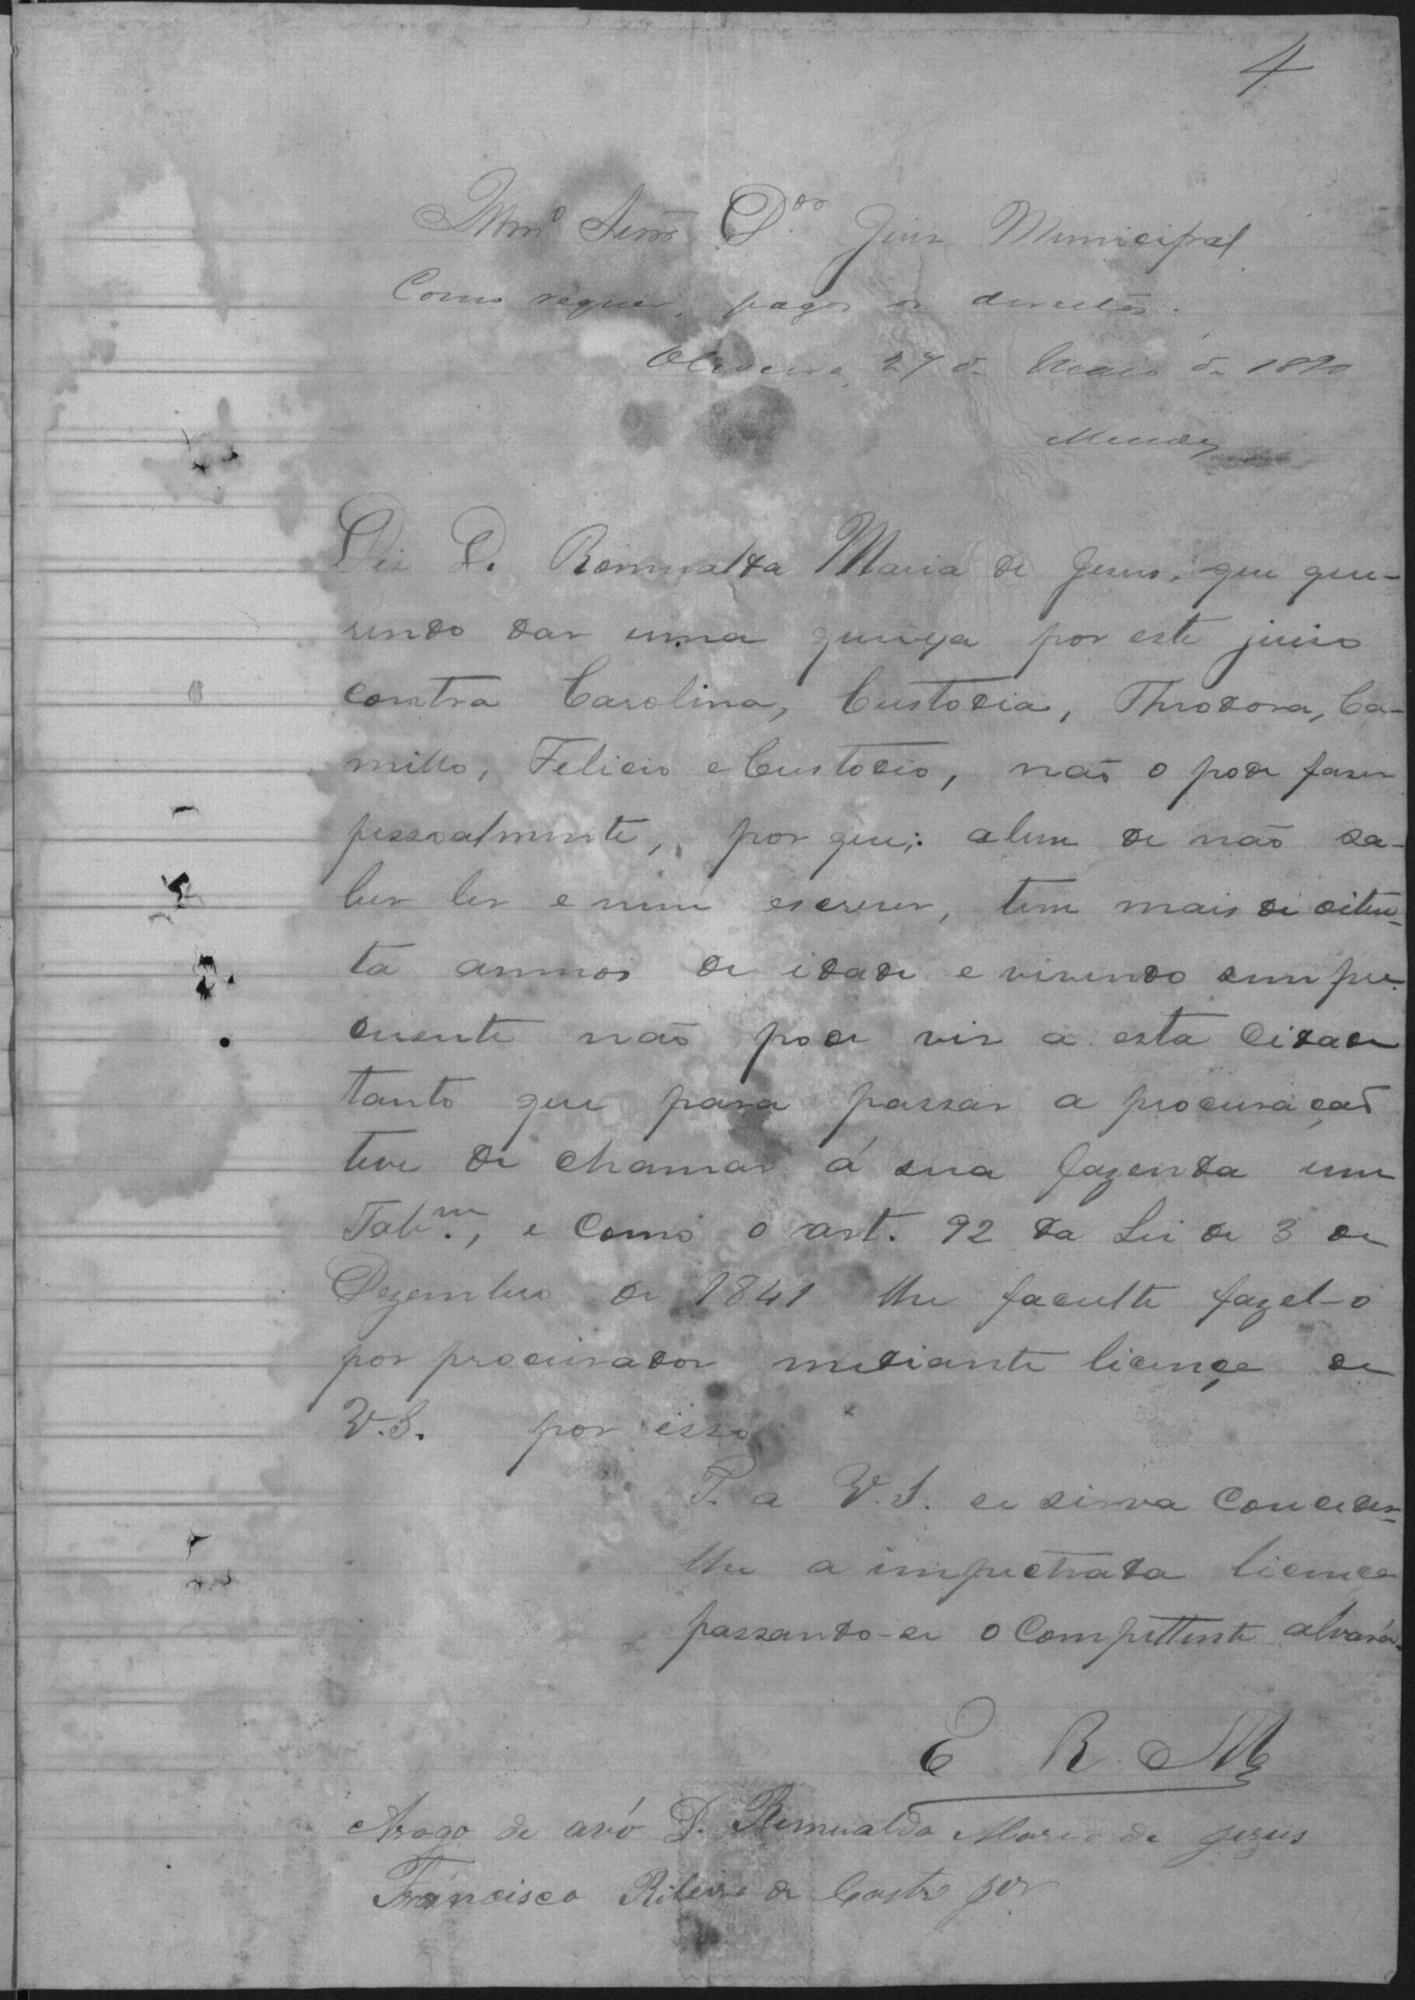 4
Illmº Senr. Dor. Juiz Municipal
Como requer, pagos os direitos.
Oliveira, 27 de Maio de 1890
Mendes
Diz D. Romualda Maria de Jesus, que que-
rendo dar uma queixa por este juiso
contra Carolina, Custodia, Theodora, Ca-
millo, Felicio e Custodio, não o pode faser
pessoalmente, por que; alem de não sa-
ber ler e nem escrever, tem mais de oiten-
ta annos de idade e vivendo sempre
doente não pode vir a esta cidade
tanto que para passar a procuração
teve de chamar á sua fazenda um
Tabm., e como o art. 92 da Lei de 3 de
Dezembro de 1841 lhe faculte fazel-o
por procurador mediante licença de
V.S. por isso
P. a V.S. se sirva conceder-
lhe a impetrada licença
passando-se o competente alvará.
E R M
Arogo de avó D. Romualda Maria de Jesus
Francisco Ribeiro de Castro Jor